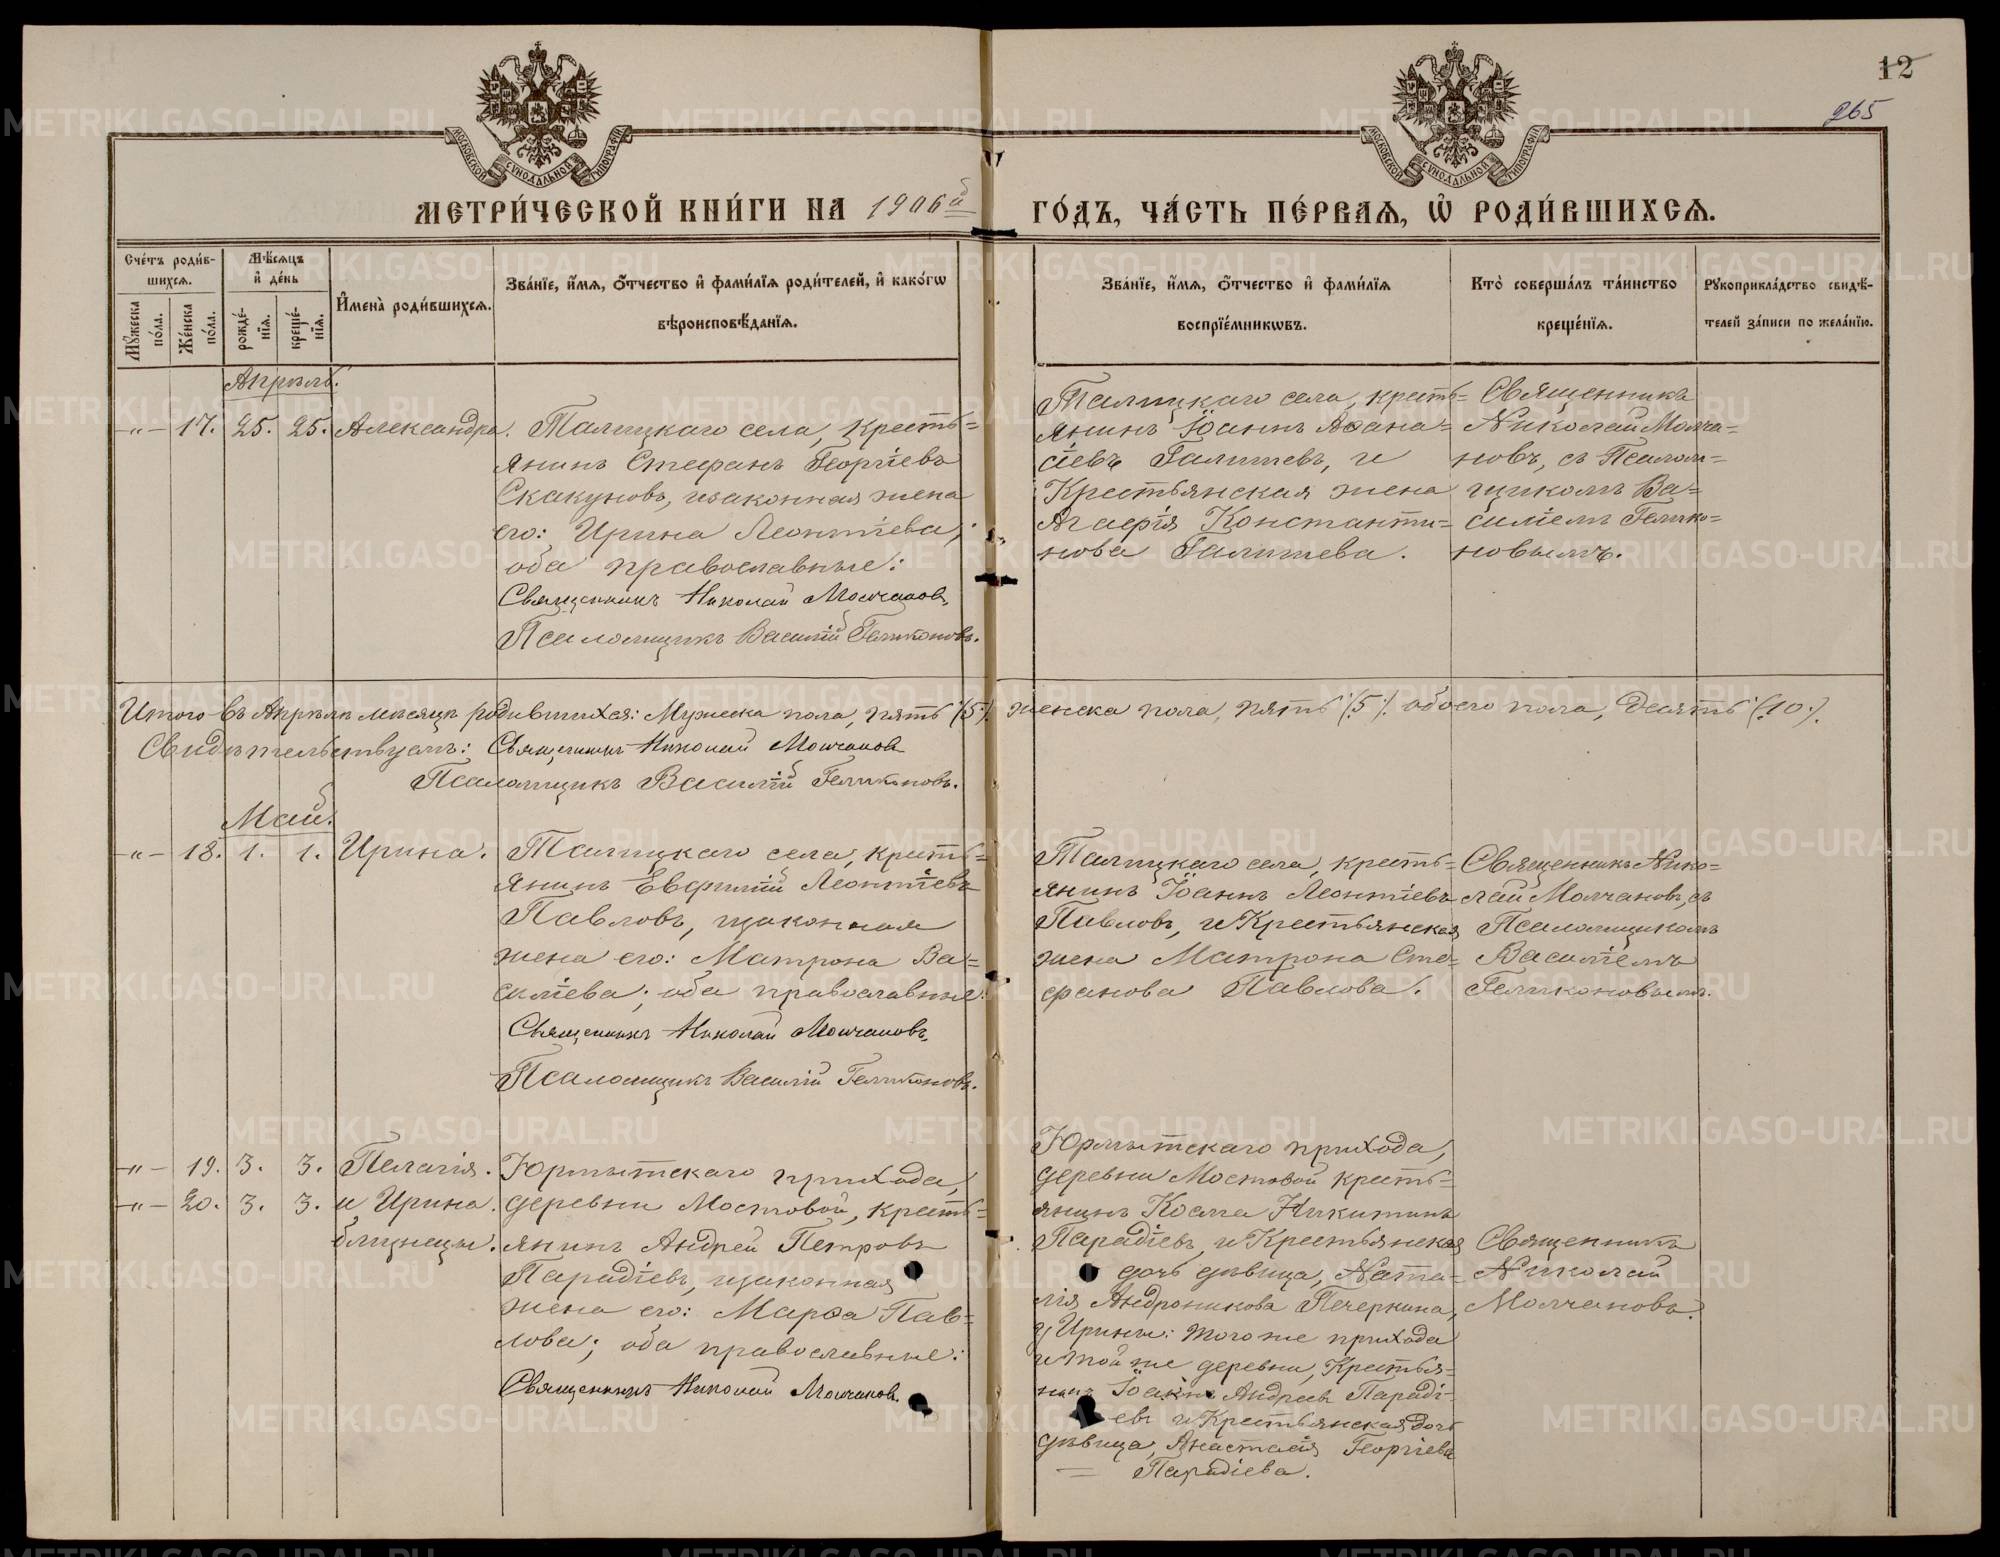 12
265
МОСКОВСКОЙ СѴНОДАЛЬНОЙ ТИПОГРАФІИ
МОСКОВСКОЙ СѴНОДАЛЬНОЙ ТИПОГРАФІИ
МЕТРИ́ЧЕСКОЙ КНИ́ГИ НА 1906й ГО́ДЪ, ЧА́СТЬ ПЕ́РВАѦ, Ѡ҆ РОДИ́ВШИХСѦ.
Сче́тъ роди́в-
шихсѧ.
Мꙋжеска по́ла.
Же́нска по́ла.
Мѣ́сѧцъ
и҆ де́нь
рожде́-
нїѧ.
креще́-
нїѧ.
И҆мена̀ роди́вшихсѧ.
Зва́нїе, и҆́мѧ, ѻ҆́тчество и҆ фами́лїѧ роди́телей, и҆ како́гѡ
вѣроисповѣ́данїѧ.
Зва́нїе, и҆́мѧ, ѻ҆́тчество и҆ фами́лїѧ
воспрїе́мникѡвъ.
Кто̀ соверша́лъ та́инство
креще́нїѧ.
Рꙋкоприкла́дство свидѣ́-
телей за́писи по жела́нїю.
Апрѣль.
-„- 17. 25. 25. Александра.
Талицкаго села, кресть=
янинъ Стефанъ Георгіевъ
Скакуновъ, и законная жена
его: Ирина Леонтіева;
оба православные:
Священникъ Николай Молчановъ.
Псаломщикъ Василій Геликоновъ.
Талицкаго села, кресть=
янинъ Іоаннъ Аѳана=
сіевъ Галишевъ, и
Крестьянская жена
Агаѳія Константи=
нова Галишева.
Священникъ
Николай Молча=
новъ, съ Псалом=
щикомъ Ва=
силіемъ Гелико=
новымъ.
Итого въ Апрѣлѣ мѣсяцѣ родившихся: Мужеска пола, пять (5) женска пола, пять (5). обоего пола, десять (10).
Свидѣтельствуемъ: Священникъ Николай Молчановъ
Псаломщикъ Василій Геликоновъ.
Май.
-„- 18. 1. 1. Ирина.
Талицкаго села, кресть=
янинъ Евфимій Леонтіевъ
Павловъ, и законная
жена его: Матрона Ва=
силіева; оба православные:
Священникъ Николай Молчановъ.
Псаломщикъ Василій Геликоновъ.
Талицкаго села, кресть=
янинъ Іоаннъ Леонтіевъ
Павловъ, и Крестьянская
жена Матрона Сте=
фанова Павлова.
Священникъ Нико=
лай Молчановъ, съ
Псаломщикомъ
Василіемъ
Геликоновымъ.
-„- 19. 3. 3. Пелагія.
-„- 20. 3. 3. и Ирина.
близнецы.
Юрмытскаго прихода,
деревни Мостовой, кресть=
янинъ Андрей Петровъ
Парадіевъ, и законная
жена его: Марѳа Пав=
лова; оба православные:
Священникъ Николай Молчановъ.
Юрмытскаго прихода,
деревни Мостовой кресть=
янинъ Косма Никитинъ
Парадіевъ, и Крестьянская
дочь дѣвица, Ната=
лія Андроникова Печеркина,
у Ирины: того же прихода
и той же деревни, Крестья=
нинъ Іоакимъ Андреевъ Параді=
евъ и Крестьянская дочь
дѣвица, Анастасія Георгіева
Парадіева.
Священникъ
Николай
Молчановъ.
METRIKI.GASO-URAL.RU